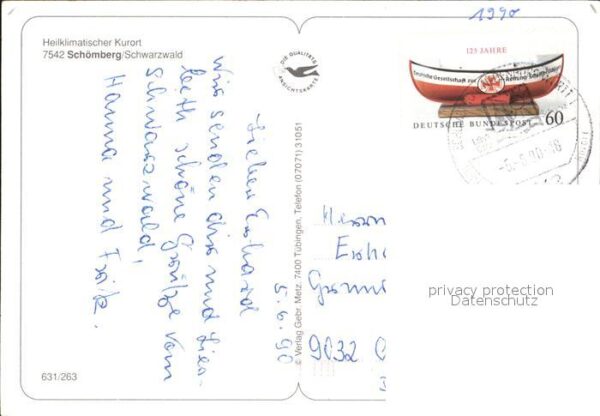 1990
Heilklimatischer Kurort
7542 Schömberg/Schwarzwald
DIE QUALITÄTS
ANSICHTSKARTE
125 JAHRE
Deutsche Gesellschaft zur Rettung Schiffbrüchiger
DEUTSCHE BUNDESPOST 60
Lieber Erhard
5.6.90
Wir senden dir und Lies-
beth schöne Grüße vom
Schwarzwald,
Hanna und Fritz.
© Verlag Gebr. Metz, 7400 Tübingen, Telefon (07071) 31051
Herrn
9032
privacy protection
Datenschutz
631/263